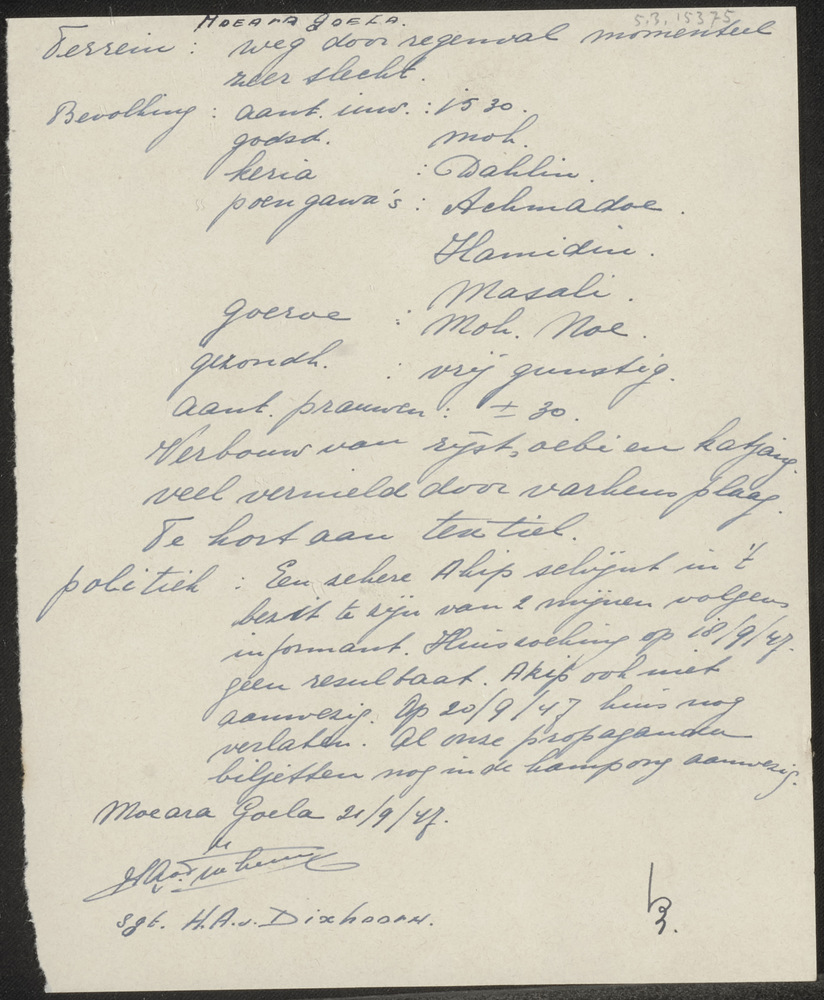 5.3.15375
MOEARA GOELA.
Terrein : weg door regenval momenteel
zeer slecht.
Bevolking : aant. inw. : 1530.
godsd. moh.
keria : Dahlin.
poengawa's : Achmadoe.
Hamidin.
Masali.
goeroe : Moh. Noe.
gezondh. : vrij gunstig.
aant. prauwen : ± 30.
Verbouw van rijst, oebi en katjang.
veel vernield door varkensplaag.
Te kort aan textiel.
politiek : Een zekere Akip schijnt in 't
bezit te zijn van 2 mijnen volgens
informant. Huiszoeking op 18/9/47.
geen resultaat. Akip ook niet
aanwezig. Op 20/9/47 huis nog
verlaten. Al onze propaganda
biljetten nog in de kampong aanwezig.
Moeara Goela 21/9/47.
sgt. H.A.v. Dixhoorn.